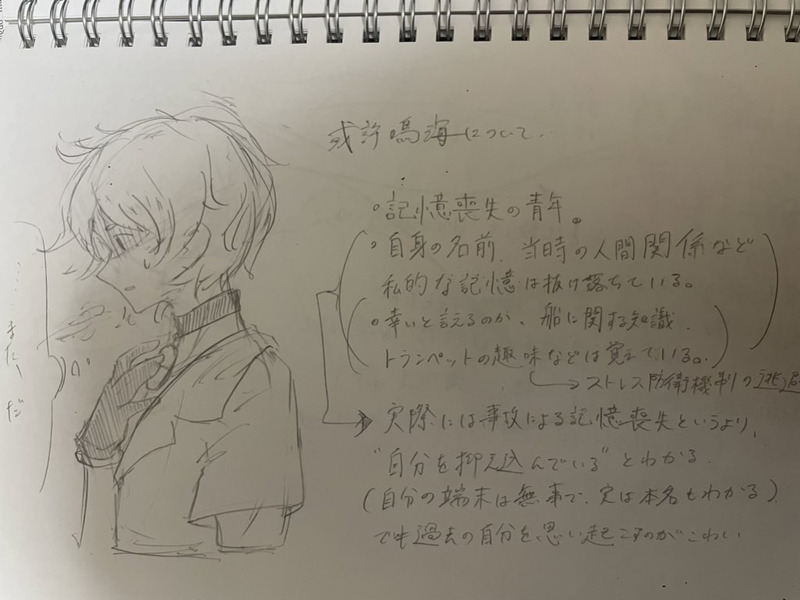 或許鳴海について.
・記憶喪失の青年。
・自身の名前、当時の人間関係など
私的な記憶は抜け落ちている。
・幸いと言えるのか、船に関する知識、
トランペットの趣味などは覚えている。
→ストレス防衛機制の逃避
→実際には事故による記憶喪失というより、
"自分を抑え込んでいる"とわかる.
(自分の端末は無事で、実は本名もわかる)
でも過去の自分を思い起こすのがこわい
……また、だ